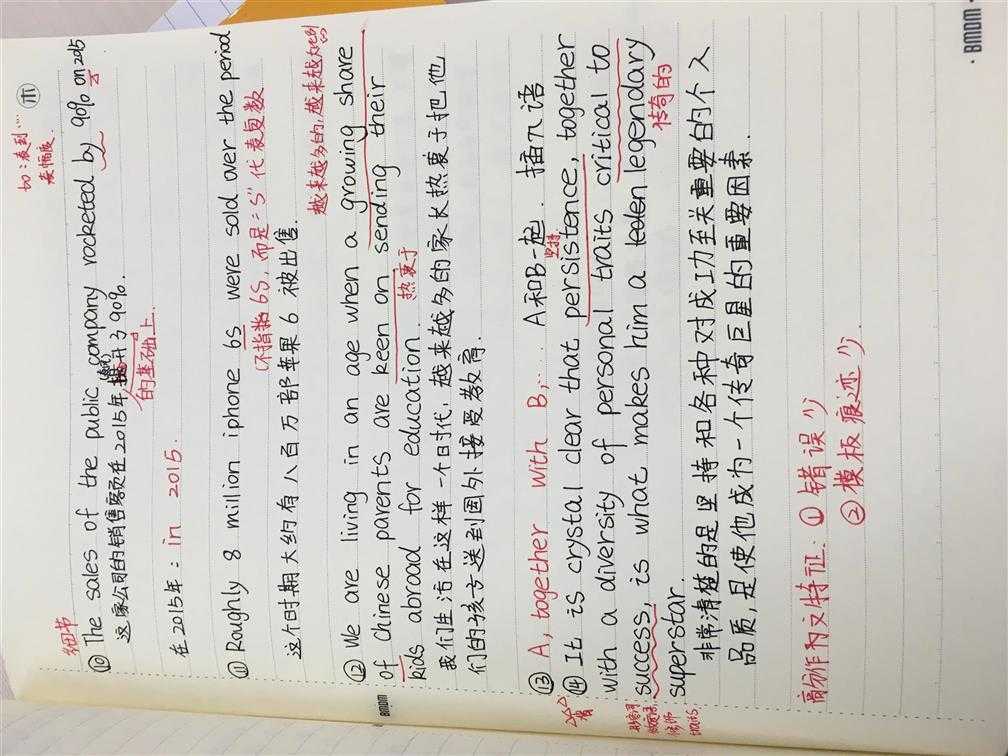 细节
⑩ The sales of the public company rocketed by 90% on 2015
这家公司的销售额在2015年提升了90%.
的基础上.
在2015年: in 2015.
⑪ Roughly 8 million iphone 6s were sold over the period
不指苹果6S, 而是 = "S" 代表复数
这个时期大约有八百万部苹果6被出售.
越来越多的, 越来越大比例
⑫ We are living in an age when a growing share
of Chinese parents are keen on sending their
热衷于
kids abroad for education.
我们生活在这样一个时代, 越来越多的家长热衷于把他
们的孩子送到国外接受教育.
⑬ A, together with B,... A和B一起. 插入语
坚持
⑭ It is crystal clear that persistence, together
with a diversity of personal traits critical to
success, is what makes him a legendary
传奇的
superstar.
非常清楚的是坚持和各种对成功至关重要的个人
品质, 是使他成为一个传奇巨星的重要因素.
高分作文特征: ① 错误少
② 模板痕迹少
BMDM
BMDM